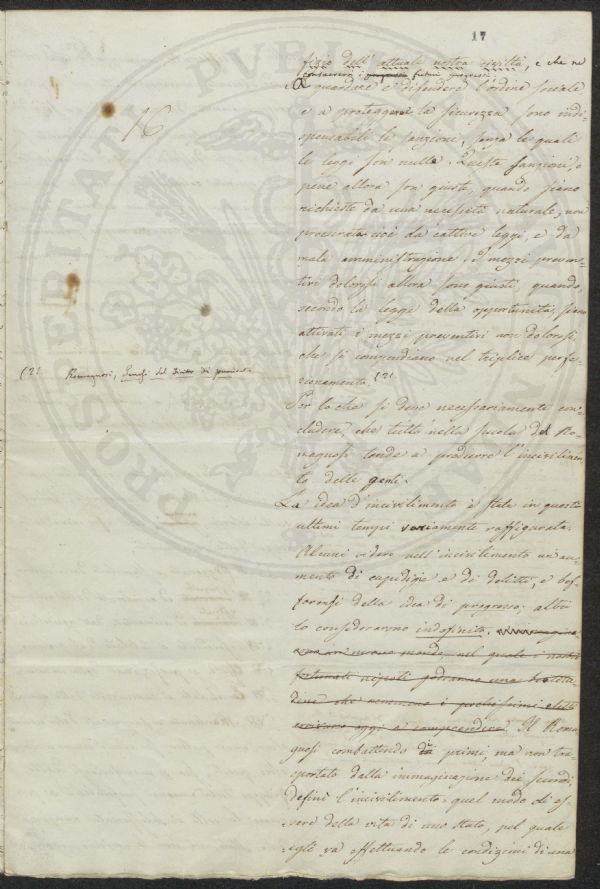 17
16
fizio dell' attuale nostra civiltà, e che ne
consacrera i futuri progressi.
A guardare e difendere l'ordine sociale
e a proteggere la sicurezza sono indi-
spensabili le sanzioni, senza le quali
le leggi son nulle. Queste sanzioni, o
pene allora son giuste, quando siano
richieste da una necessità naturale, non
procurata cioè da cattive leggi, e da
mala amministrazione, i mezzi preven-
tivi dolorosi allora sono giusti, quando,
secondo la legge della opportunità, siano
attivati i mezzi preventivi non dolorosi,
che si comprendiano nel triplice perfe-
zionamento. (2)
(2) Romagnosi, Genesi del Diritto di punire.
Per lo che si deve necessariamente con-
cludere, che tutto nella scuola del Ro-
magnosi tende a produrre l'incivilimen-
to delle genti.
La idea d'incivilimento è stata in questi
ultimi tempi variamente raffigurata.
Alcuni videro nell'incivilimento un au-
mento di cupidigie e di delitti, e bef-
faronsi della idea di progresso; altri
lo considerarono indefinito,
un nuovo mondo, nel quale i nostri
fortunati nipoti godranno una
che nemmeno i pochissimi eletti
arrivano oggi a comprendere. Il Roma-
gnosi combattendo i primi, ma non tra-
sportato dalla immaginazione dei secondi,
definì l'incivilimento: quel modo di es-
sere della vita di uno Stato, pel quale
egli va effettuando le condizioni di una
PROSPERITATI PUBLICAE